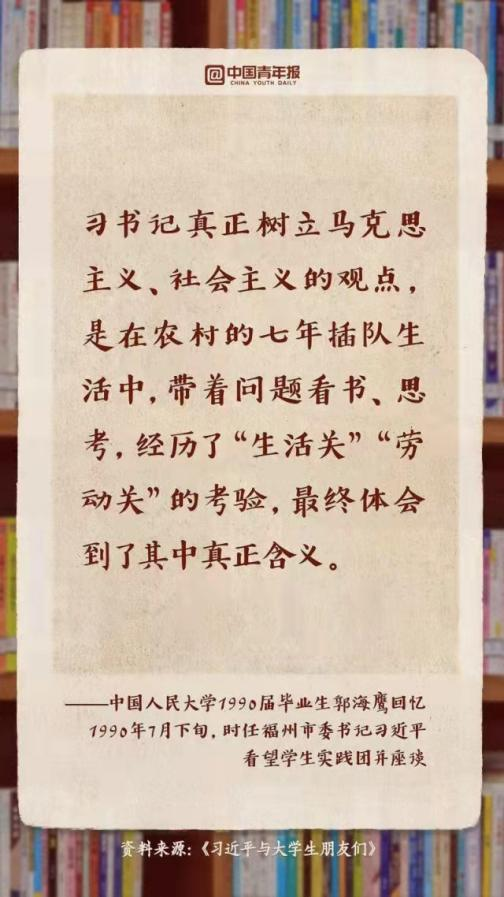 @中国青年报
CHINA YOUTH DAILY
习书记真正树立马克思
主义、社会主义的观点，
是在农村的七年插队生
活中，带着问题看书、思
考，经历了“生活关”“劳
动关”的考验，最终体会
到了其中真正含义。
——中国人民大学1990届毕业生郭海鹰回忆
1990年7月下旬，时任福州市委书记习近平
看望学生实践团并座谈
资料来源：《习近平与大学生朋友们》